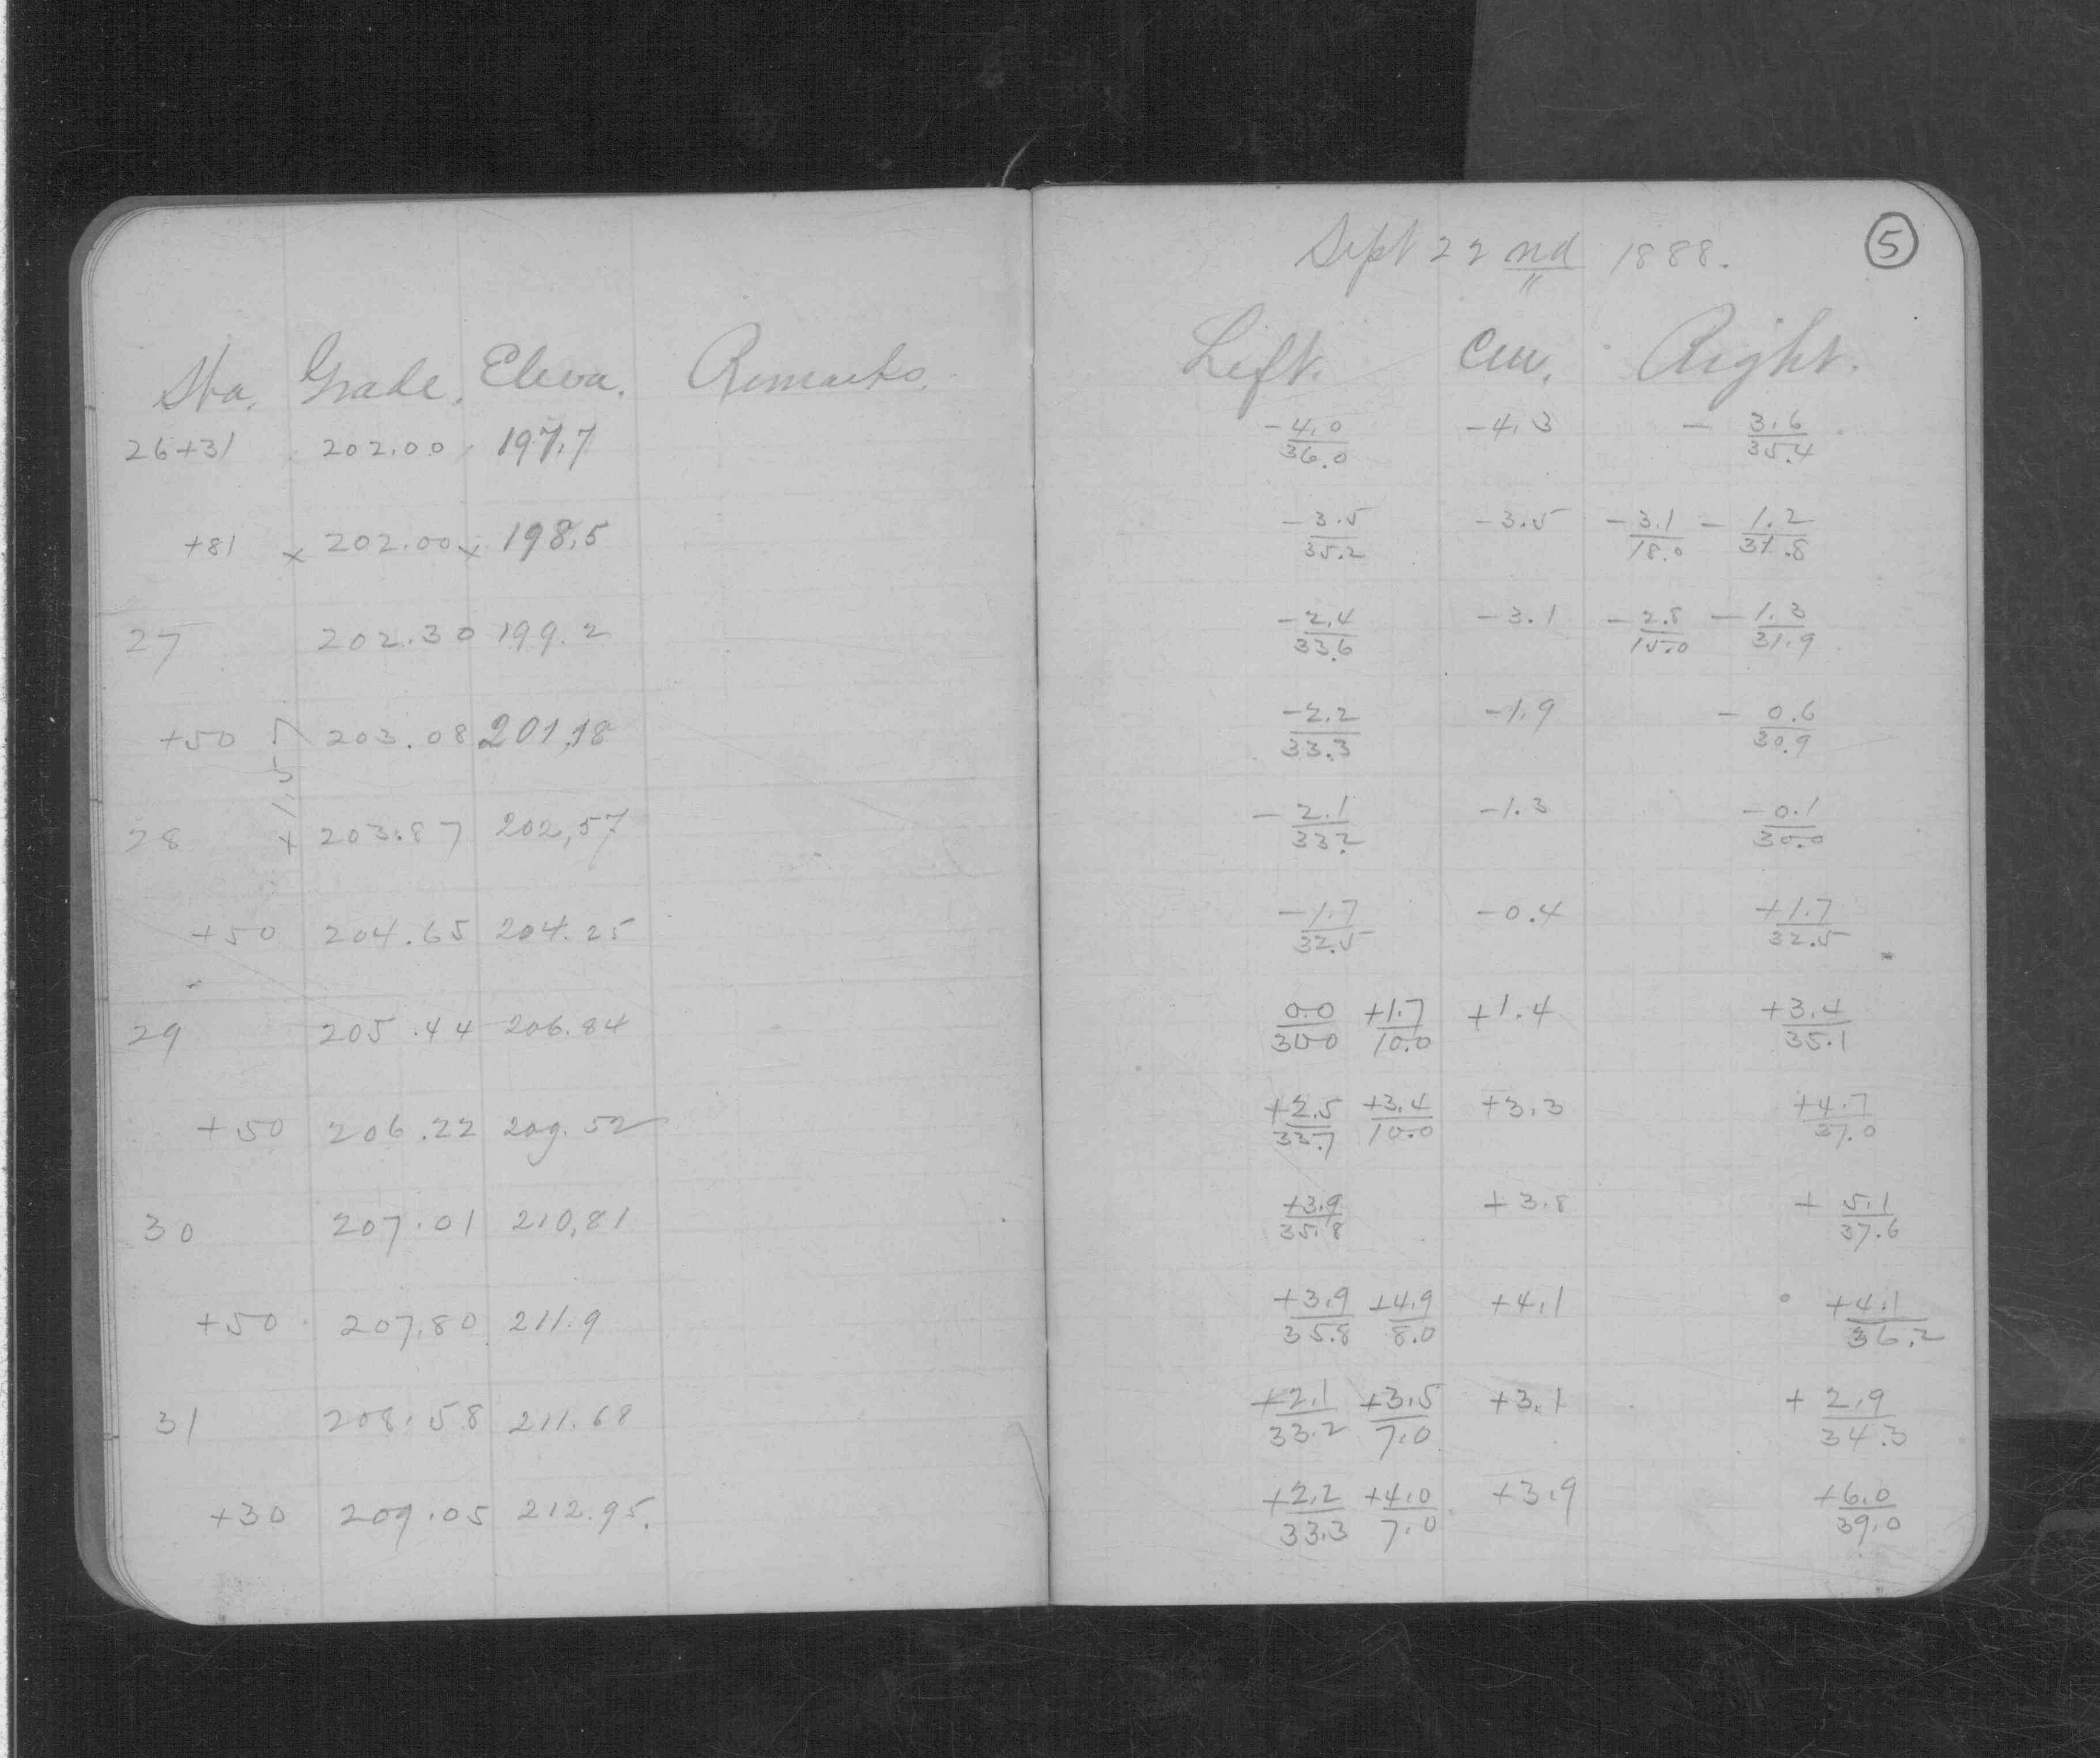 Sta. Grade. Eleva. Remarks.
26+31 202.00 197.7
+81 x 202.00 x 198.5
27 202.30 199.2
+50 203.08 201.18
+1.57
28 203.87 202.57
+50 204.65 204.25
29 205.44 206.84
+50 206.22 209.52
30 207.01 210.81
+50 207.80 211.9
31 208.58 211.68
+30 209.05 212.95.
Sept 22nd 1888.
5
Left. Cen. Right.
-4.0/36.0 -4.3 - 3.6/35.4
-3.5/35.2 -3.5 -3.1/18.0 - 1.2/31.8
-2.4/33.6 -3.1 -2.8/15.0 -1.3/31.9
-2.2/33.3 -1.9 - 0.6/30.9
- 2.1/33.2 -1.3 -0.1/30.0
-1.7/32.5 -0.4 +1.7/32.5
0.0/30.0 +1.7/10.0 +1.4 +3.4/35.1
+2.5/33.7 +3.4/10.0 +3.3 +4.7/37.0
+3.9/35.8 +3.8 + 5.1/37.6
+3.9/35.8 +4.9/8.0 +4.1 +4.1/36.2
+2.1/33.2 +3.5/7.0 +3.1 + 2.9/34.3
+2.2/33.3 +4.0/7.0 +3.9 +6.0/39.0